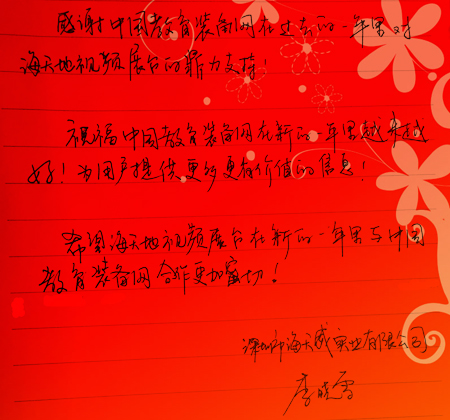 感谢中国教育装备网在过去的一年里对
海天地视频展台的鼎力支持！
祝福中国教育装备网在新的一年里越来越
好！为用户提供更多更有价值的信息！
希望海天地视频展台在新的一年里与中国
教育装备网合作更加密切！
深圳市海天威实业有限公司
李晓雪